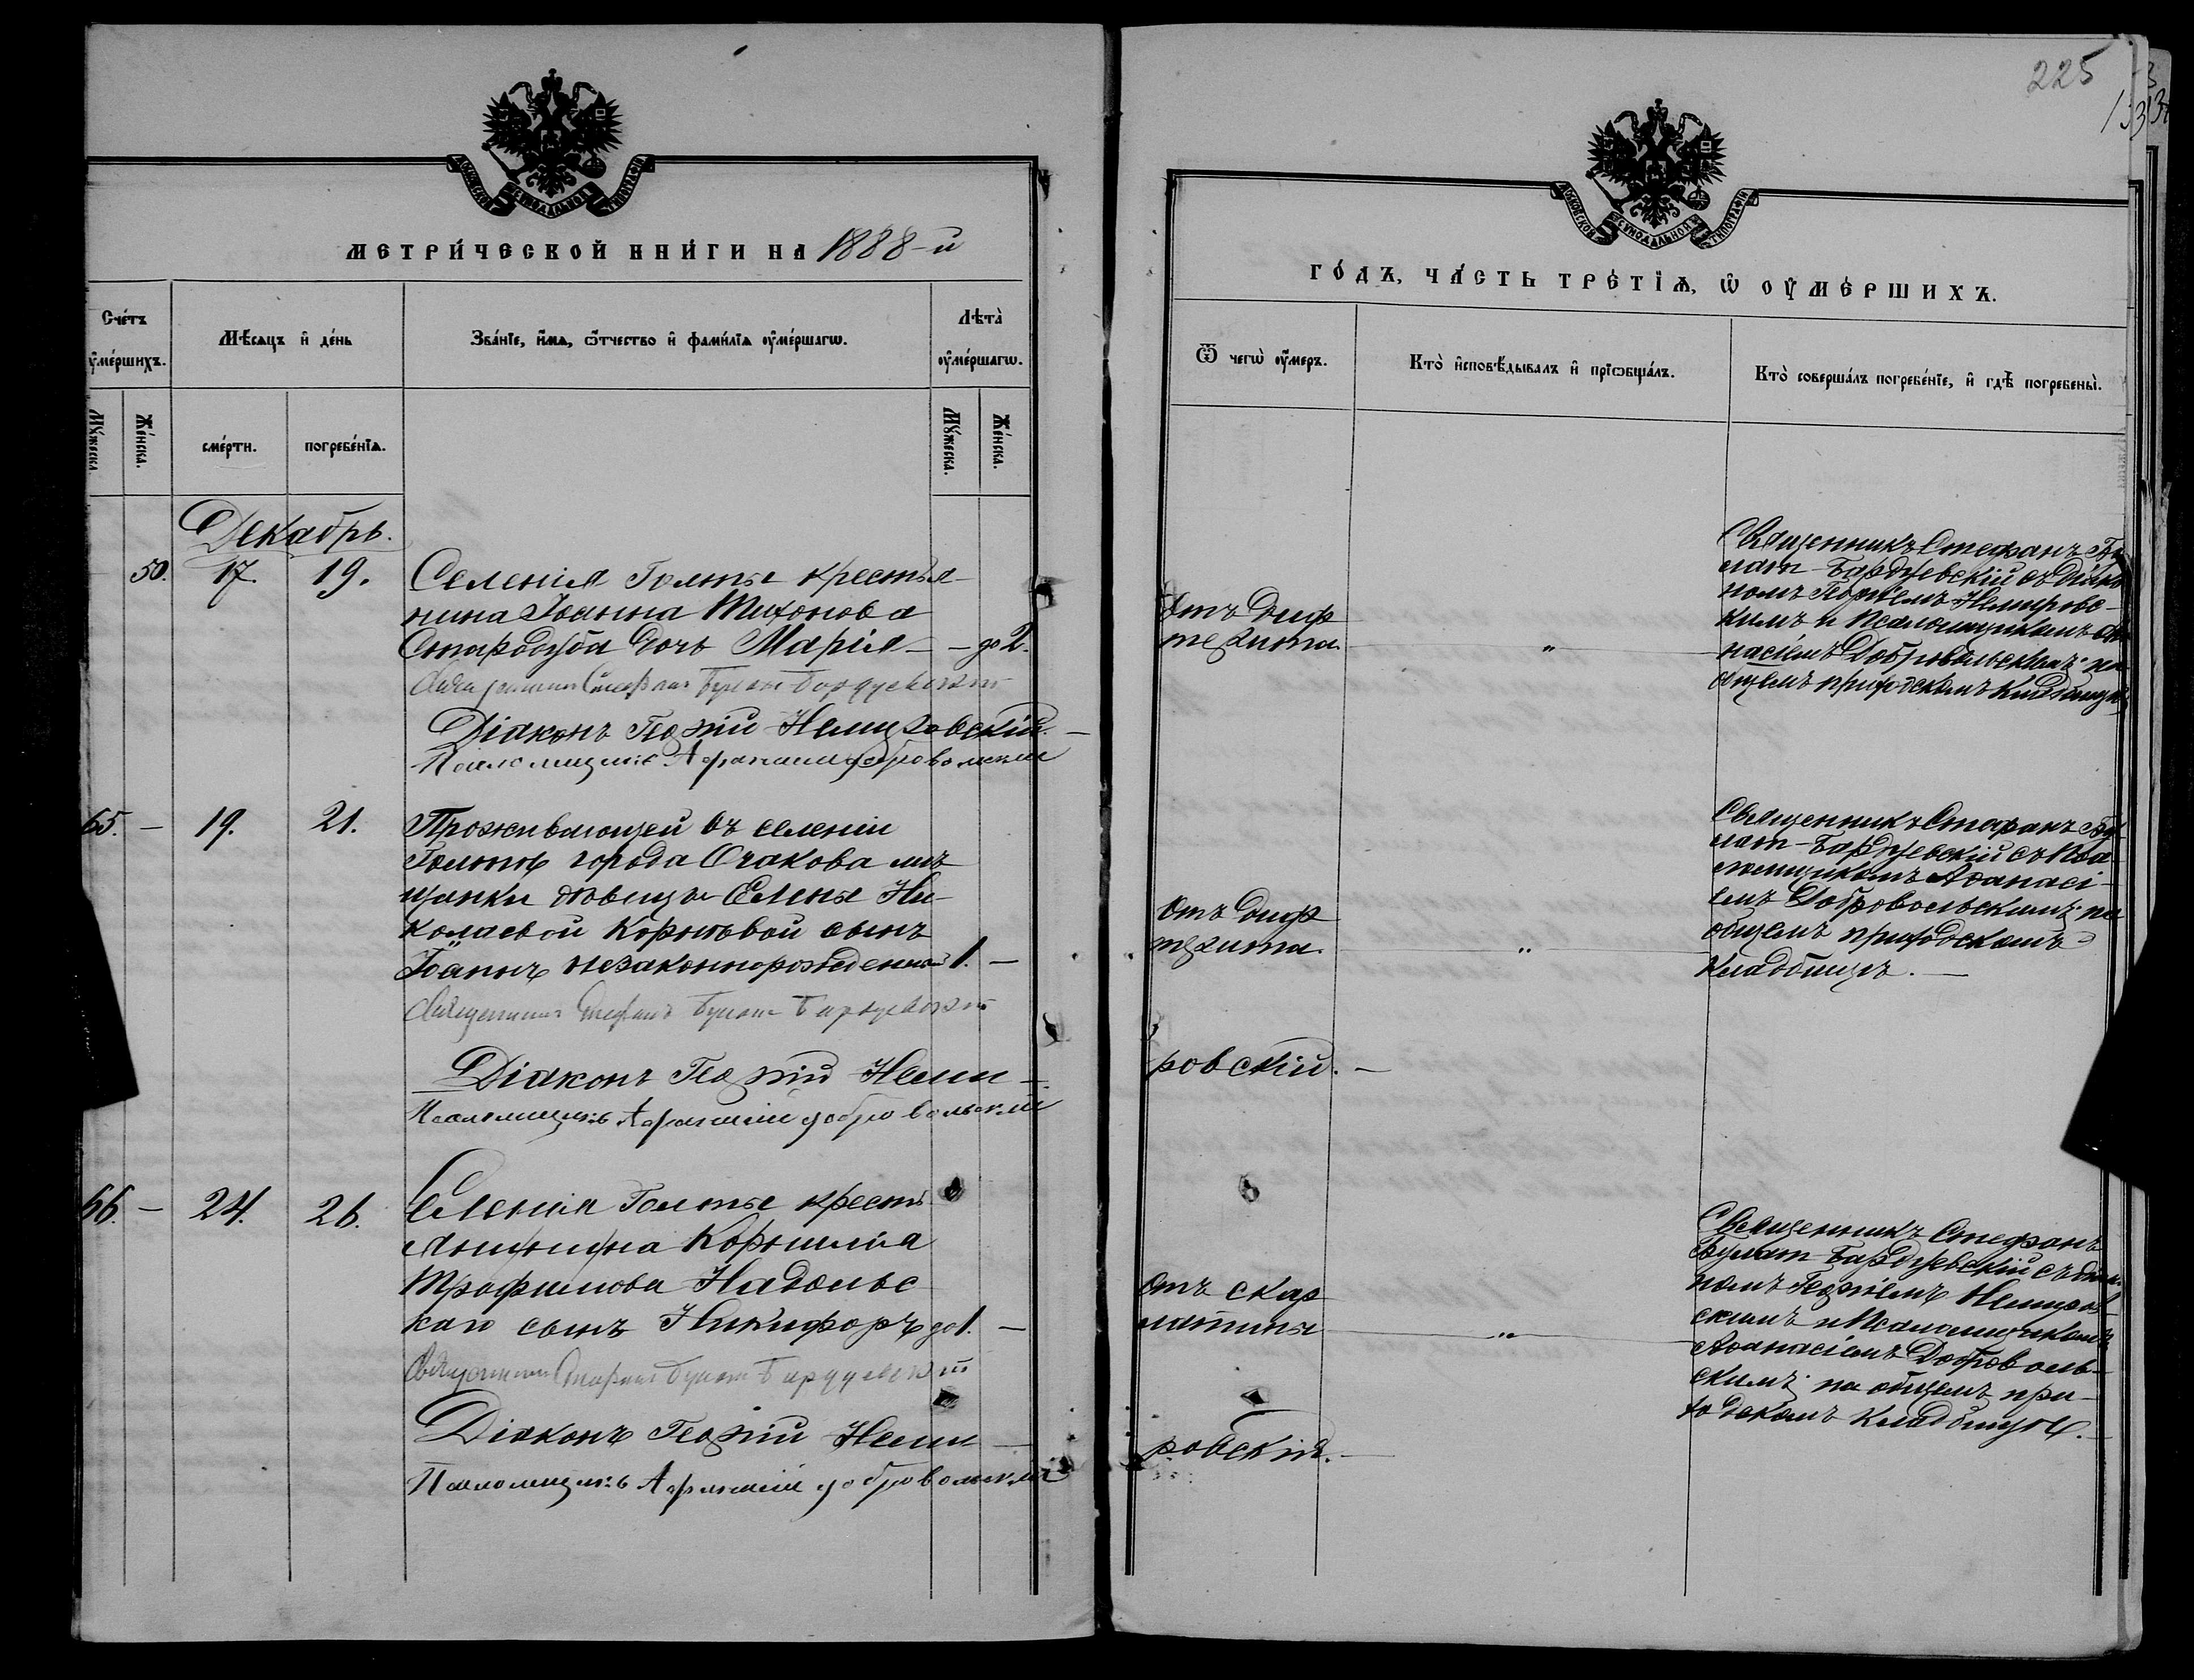 225
МОСКОВСКОЙ СѴНОДАЛЬНОЙ ТИПОГРАФІИ
МЕТРИ́ЧЕСКОЙ КНИ́ГИ НА 1888-й
Сче́тъ ᲂу҆ме́ршихъ.
Мѣ́сѧцъ и҆ де́нь
Зва́нїе, и҆́мѧ, ѻ҆́тчество и҆ фами́лїѧ ᲂу҆ме́ршагѡ.
Лѣта̀ ᲂу҆ме́ршагѡ.
Мꙋ́жеска.
Же́нска.
сме́рти.
погребе́нїѧ.
Мꙋ́жеска.
Же́нска.
Декабрь.
50. 17. 19. Селенія Голты крестья-
нина Іоанна Тихонова
Стародуба дочь Марія — до 2.
Священникъ Стефанъ Булат-Бардуевскій
Діаконъ Георгій Немировскій.
Псаломщикъ Афанасій Добровольскій
65. — 19. 21. Проживающей въ селеніи
Голтѣ города Очакова мѣ-
щанки дѣвицы Елены Ни-
колаевой Корнѣевой сынъ
Іоаннъ незаконнорожденный 1. —
Священникъ Стефанъ Булат-Бардуевскій
Діаконъ Георгій Неми-
Псаломщикъ Афанасій Добровольскій
66. — 24. 26. Селенія Голты кресть
янина Корнилія
Трофимова Надольс
каго сынъ Никифоръ до 1. —
Священникъ Стефанъ Булат-Бардуевскій
Діаконъ Георгій Неми-
Псаломщикъ Афанасій Добровольскій
МОСКОВСКОЙ СѴНОДАЛЬНОЙ ТИПОГРАФІИ
ГО́ДЪ, ЧА́СТЬ ТРЕ́ТЇѦ, Ѡ҆ ОУ҆МЕ́РШИХЪ.
Ѿ чегѡ̀ ᲂу҆́меръ.
Кто̀ и҆сповѣ́дывалъ и҆ прїѡбща́лъ.
Кто̀ соверша́лъ погребе́нїе, и҆ гдѣ̀ погребены̀.
Отъ диф
терита. „
Священникъ Стефанъ Бу
лат-Бардуевскій съ Діако
номъ Георгіемъ Немировс-
кимъ и Псаломщикомъ Афа
насіемъ Добровольскимъ на
общемъ приходскомъ кладбищѣ
Отъ диф
терита. „
Священникъ Стефанъ Бу
лат-Бардуевскій съ Пса
ломщикомъ Афанасі-
емъ Добровольскимъ на
общемъ приходскомъ
кладбищѣ. —
ровскій. —
Отъ скар
латины „
Священникъ Стефанъ
Булат-Бардуевскій съ діако
номъ Георгіемъ Немиров
скимъ и Псаломщикомъ
Афанасіемъ Доброволь-
скимъ на общемъ при-
ходскомъ кладбищѣ.
ровскій. —